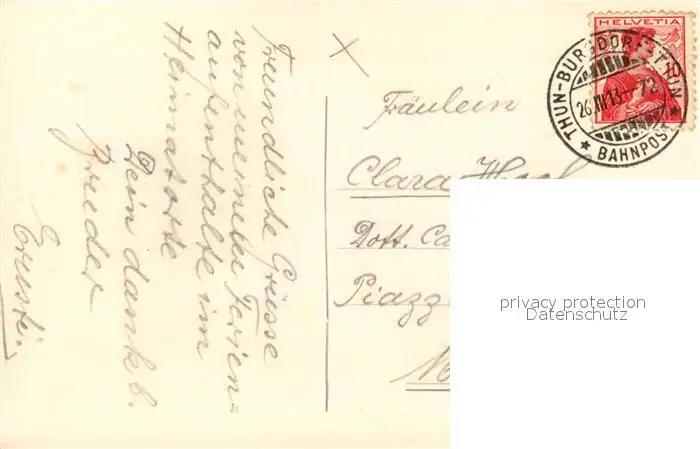 Freundliche Grüsse
von meinem Ferien=
aufenthalte im
Heimatorte
Dein dankb.
Bruder
Ernsti.
Fräulein
Clara
Dott. Ca
Piazz
M
HELVETIA
THUN-BURGDORF-THUN
BAHNPOST
privacy protection
Datenschutz